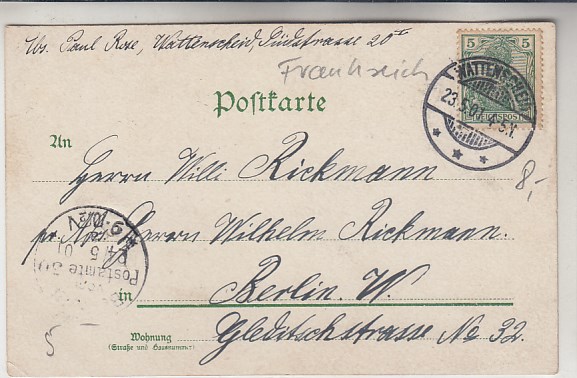 Abs. Paul Rose, Wattenscheid, Südstrasse 20 I
Frankreich
5 5
REICHSPOST
WATTENSCHEID
23.5.01. 4-5.V.
Postkarte
An
Herrn Willi Rickmann
pr. Adr. Herrn Wilhelm Rickmann.
8,-
in Berlin. W.
Gleditschstrasse No 32.
Wohnung
(Straße und Hausnummer)
Postamte 30
5